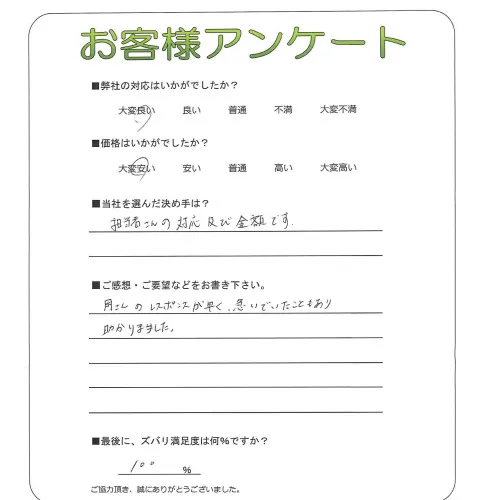 お客様アンケート
■弊社の対応はいかがでしたか？
大変良い 良い 普通 不満 大変不満
■価格はいかがでしたか？
大変安い 安い 普通 高い 大変高い
■当社を選んだ決め手は？
担当者さんの対応及び金額です.
■ご感想・ご要望などをお書き下さい。
さんのレスポンスが早く、急いでいたこともあり
助かりました。
■最後に、ズバリ満足度は何%ですか？
100 %
ご協力頂き、誠にありがとうございました。